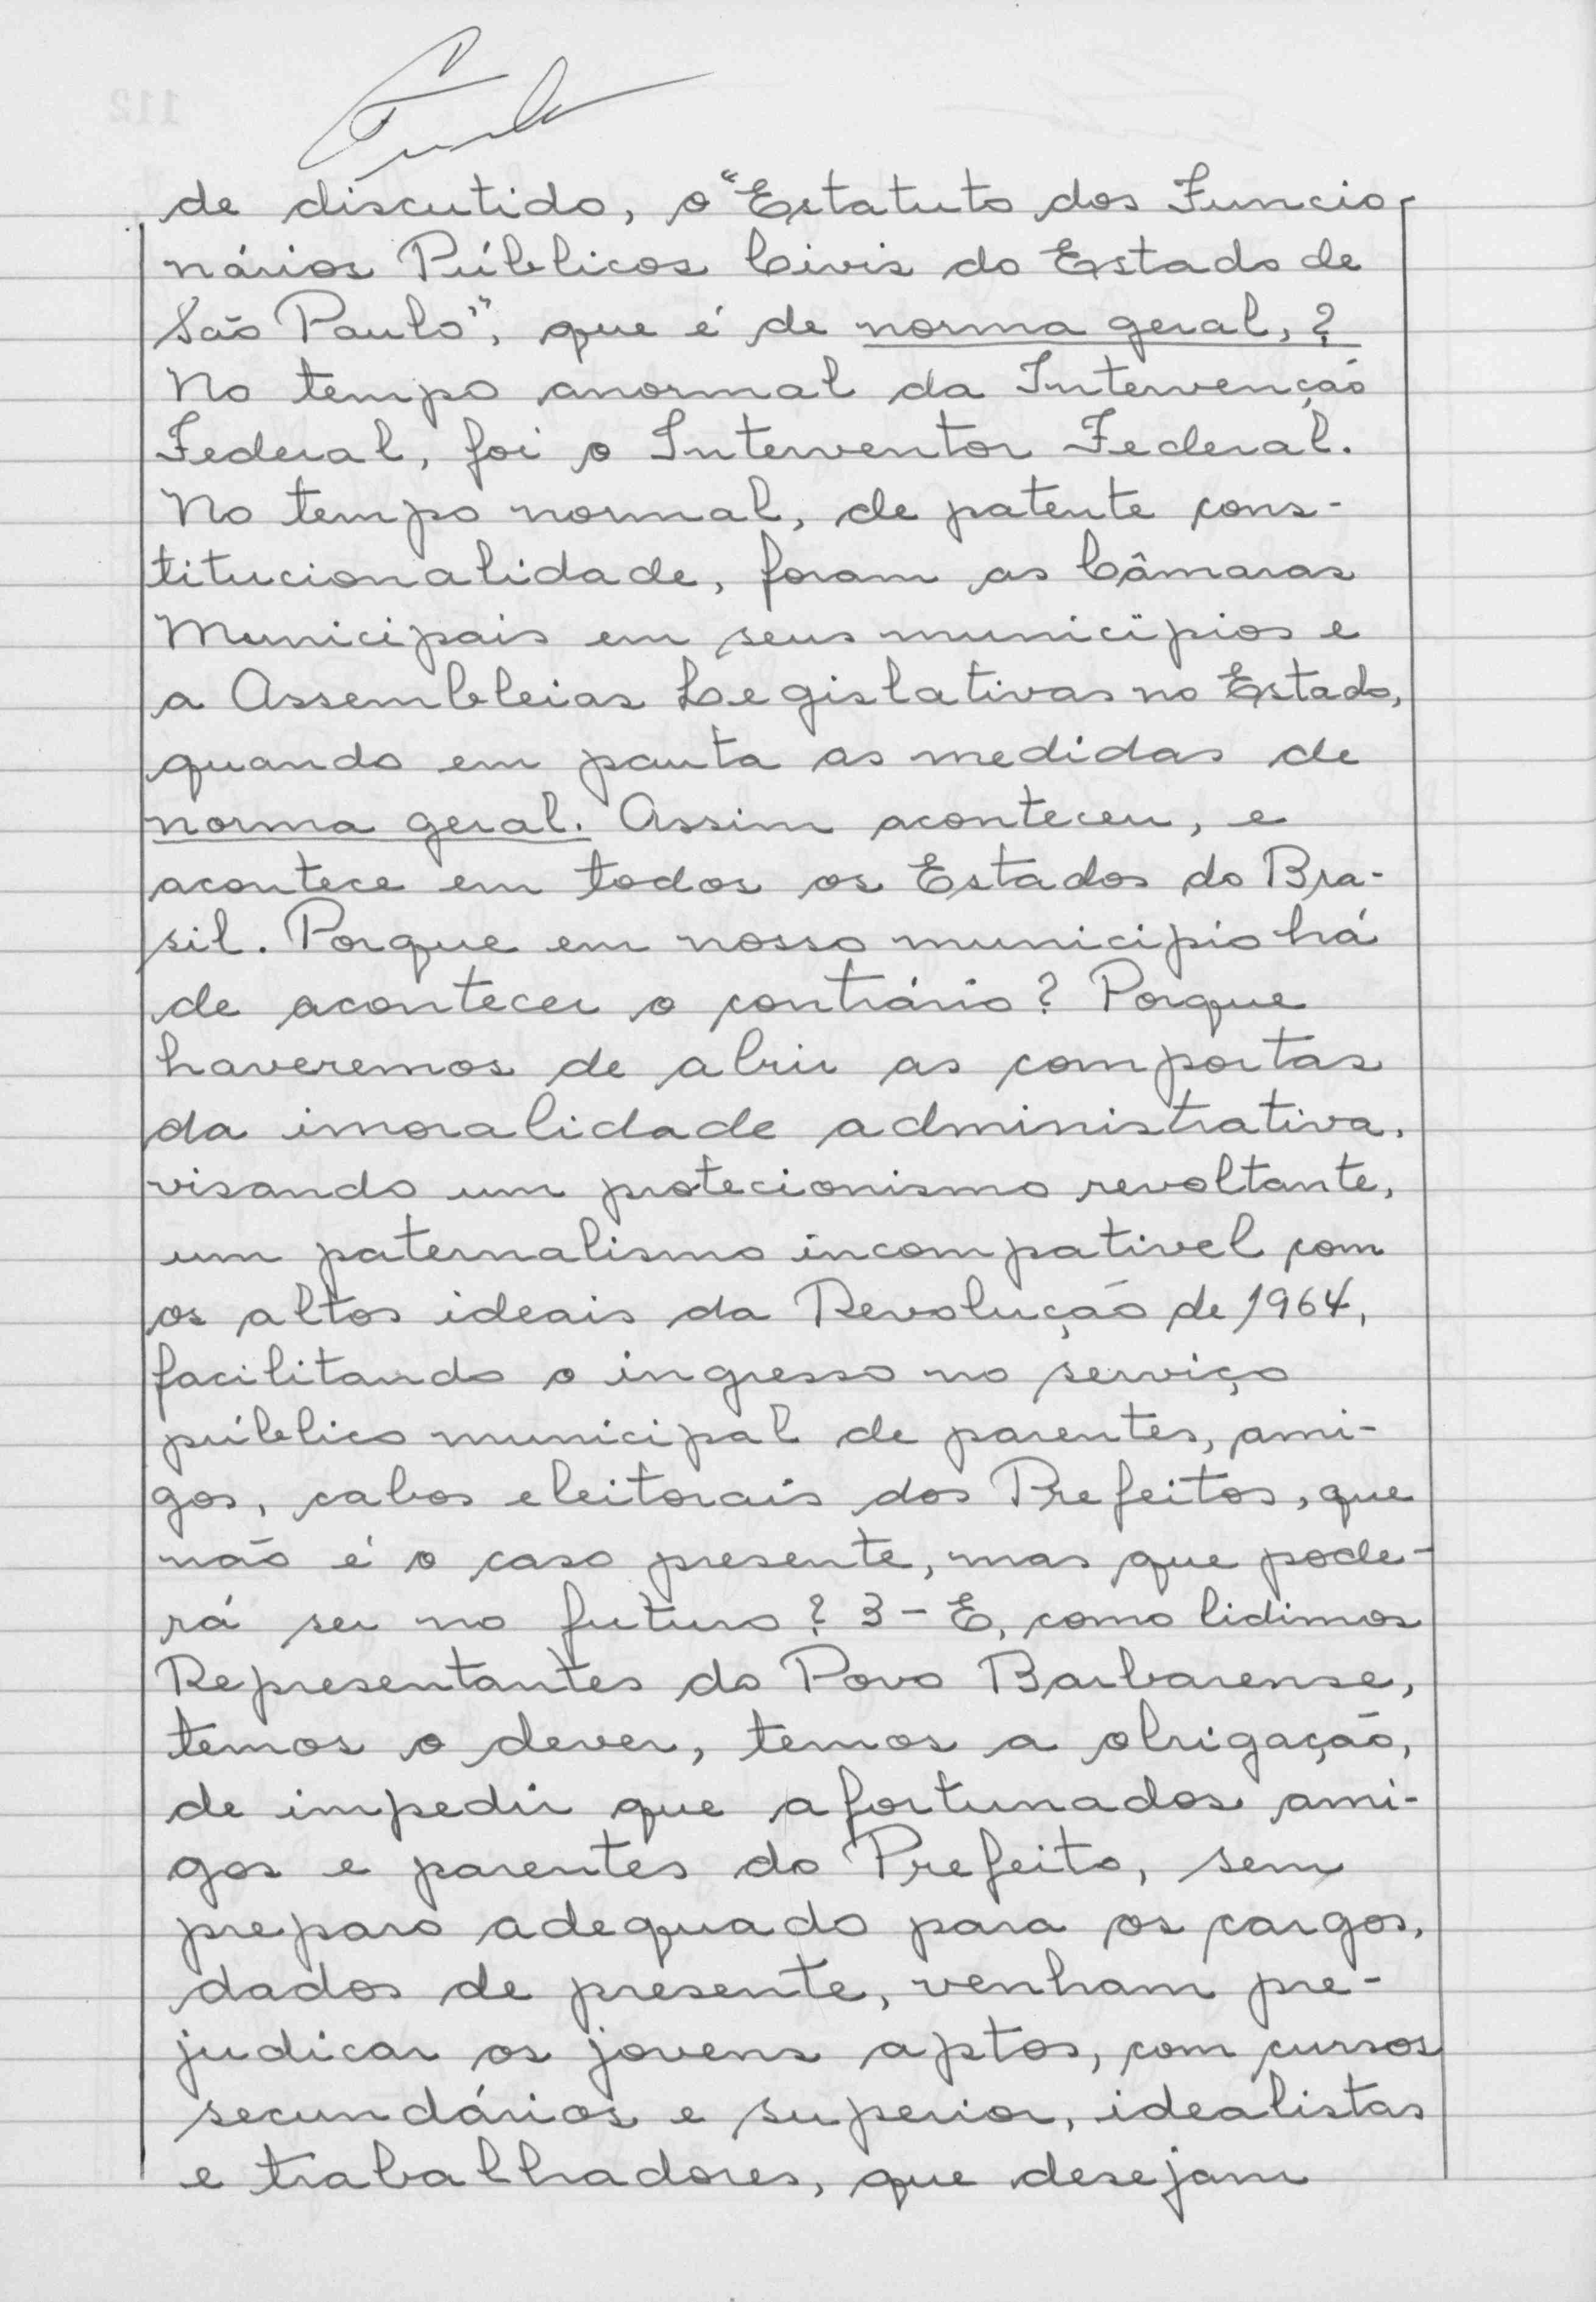 de discutido, o "Estatuto dos Funcio
nários Públicos Civis do Estado de
São Paulo", que é de norma geral,?
No tempo anormal da Intervenção
Federal, foi o Interventor Federal.
No tempo normal, de patente cons-
titucionalidade, foram as Câmaras
Municipais em seus municípios e
a Assembleias Legislativas no Estado,
quando em pauta as medidas de
norma geral. Assim aconteceu, e
acontece em todos os Estados do Bra-
sil. Porque em nosso municipio há
de acontecer o contrário? Porque
haveremos de abrir as comportas
da imoralidade administrativa,
visando um protecionismo revoltante,
um paternalismo incompativel com
os altos ideais da Revolução de 1964,
facilitando o ingresso no serviço
público municipal de parentes, ami-
gos, cabos eleitorais dos Prefeitos, que
não é o caso presente, mas que pode-
rá ser no futuro? 3 - E, como lidimos
Representantes do Povo Barbarense,
temos o dever, temos a obrigação,
de impedir que afortunados ami-
gos e parentes do Prefeito, sem
preparo adequado para os cargos,
dados de presente, venham pre-
judicar os jovens aptos, com cursos
secundários e superior, idealistas
e trabalhadores, que desejam